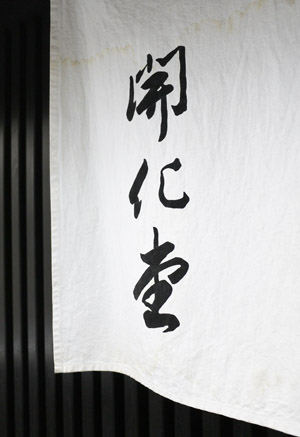 開化堂